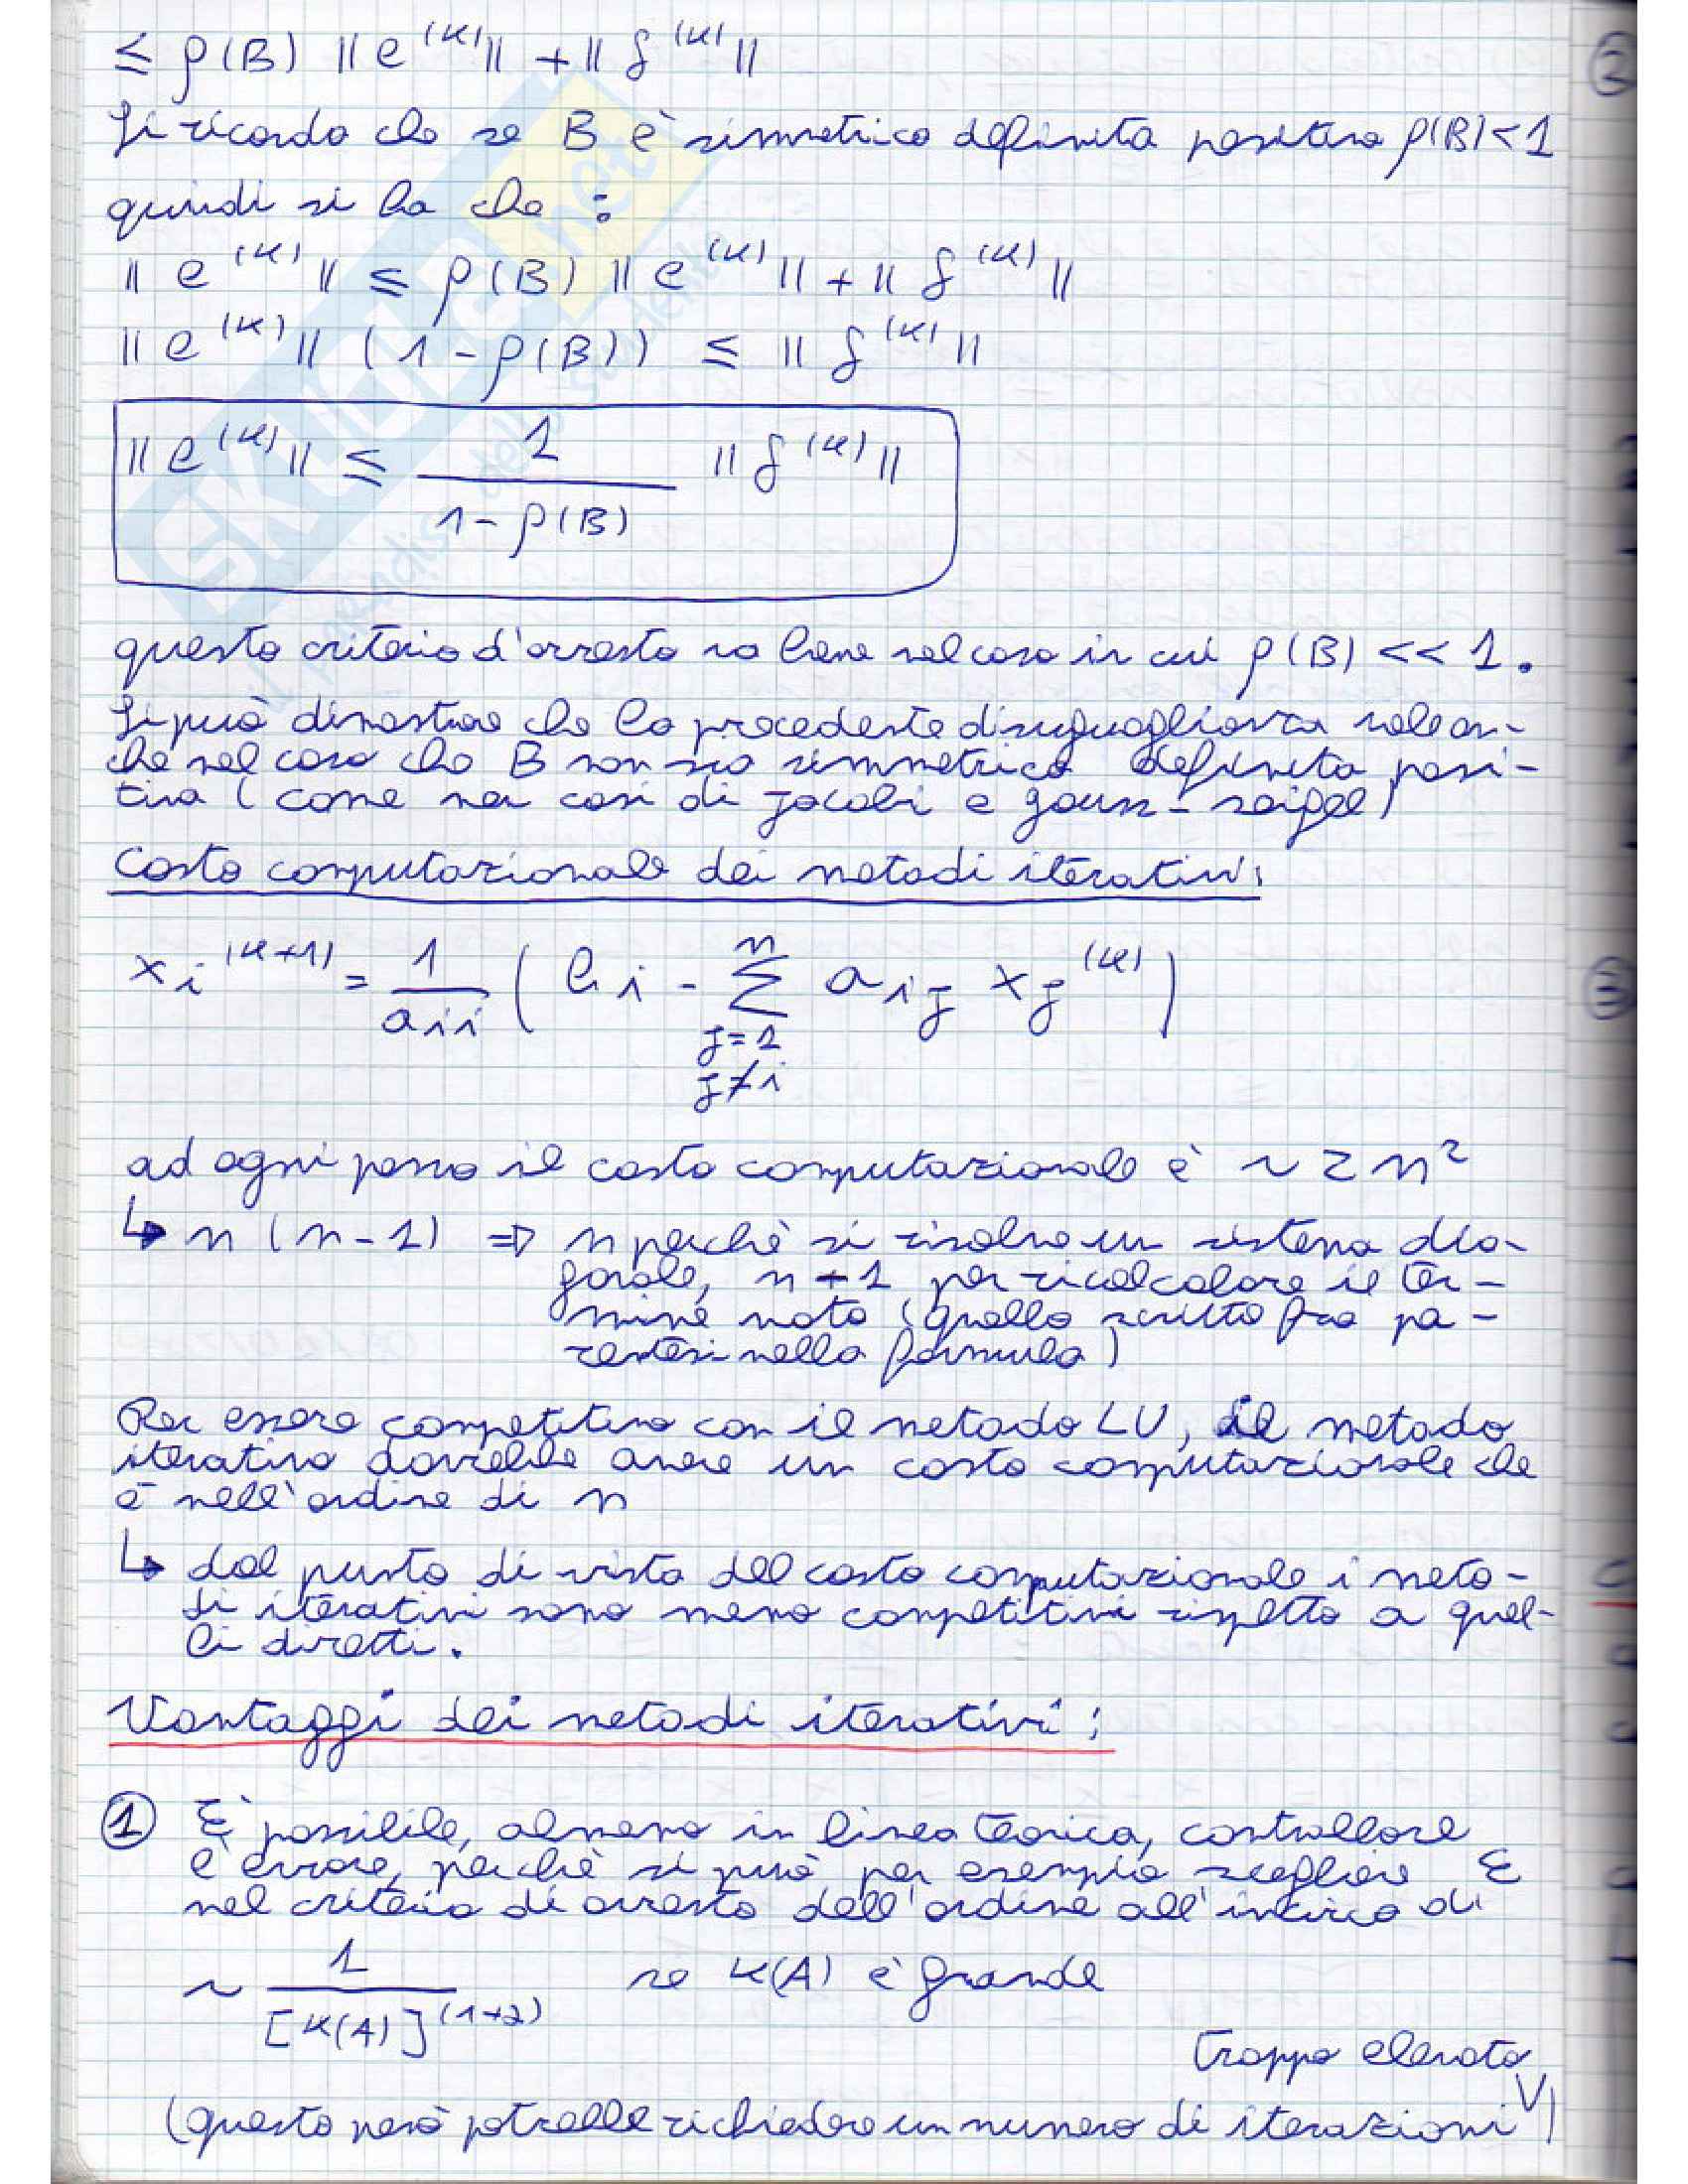 ≤ ρ(B) ||e^(k)|| + ||δ^(k)||
Si ricorda che se B è simmetrica definita positiva ρ(B)<1
quindi si ha che :
||e^(k)|| ≤ ρ(B) ||e^(k)|| + ||δ^(k)||
||e^(k)|| (1-ρ(B)) ≤ ||δ^(k)||
||e^(k)|| ≤ 1/(1-ρ(B)) ||δ^(k)||
questo criterio d'arresto va bene nel caso in cui ρ(B) << 1.
Si può dimostrare che la precedente disuguaglianza vale an-
che nel caso che B non sia simmetrica definita posi-
tiva (come nei casi di Jacobi e Gauss-Seidel)
Costo computazionale dei metodi iterativi:
x_i^(k+1) = 1/a_ii ( b_i - Σ_{j=1, j≠i}^{n} a_ij x_j^(k) )
ad ogni passo il costo computazionale è ~ 2n²
↳ n(n-1) ⇒ n perchè si risolve un sistema dia-
gonale, n-1 per ricalcolare il ter-
mine noto (quello scritto fra pa-
rentesi nella formula)
Per essere competitivo con il metodo LU, il metodo
iterativo dovrebbe avere un costo computazionale che
è nell'ordine di n
↳ dal punto di vista del costo computazionale i meto-
di iterativi sono meno competitivi rispetto a quel-
li diretti.
Vantaggi dei metodi iterativi:
① È possibile, almeno in linea teorica, controllare
l'errore, perchè si può per esempio scegliere ε
nel criterio di arresto dell'ordine all'incirca di
~ 1/[K(A)]^(1÷2) se K(A) è grande
troppo elevato
(questo però potrebbe richiedere un numero di iterazioni V)
2
3
SKUOLA.net
il paradiso dello studente